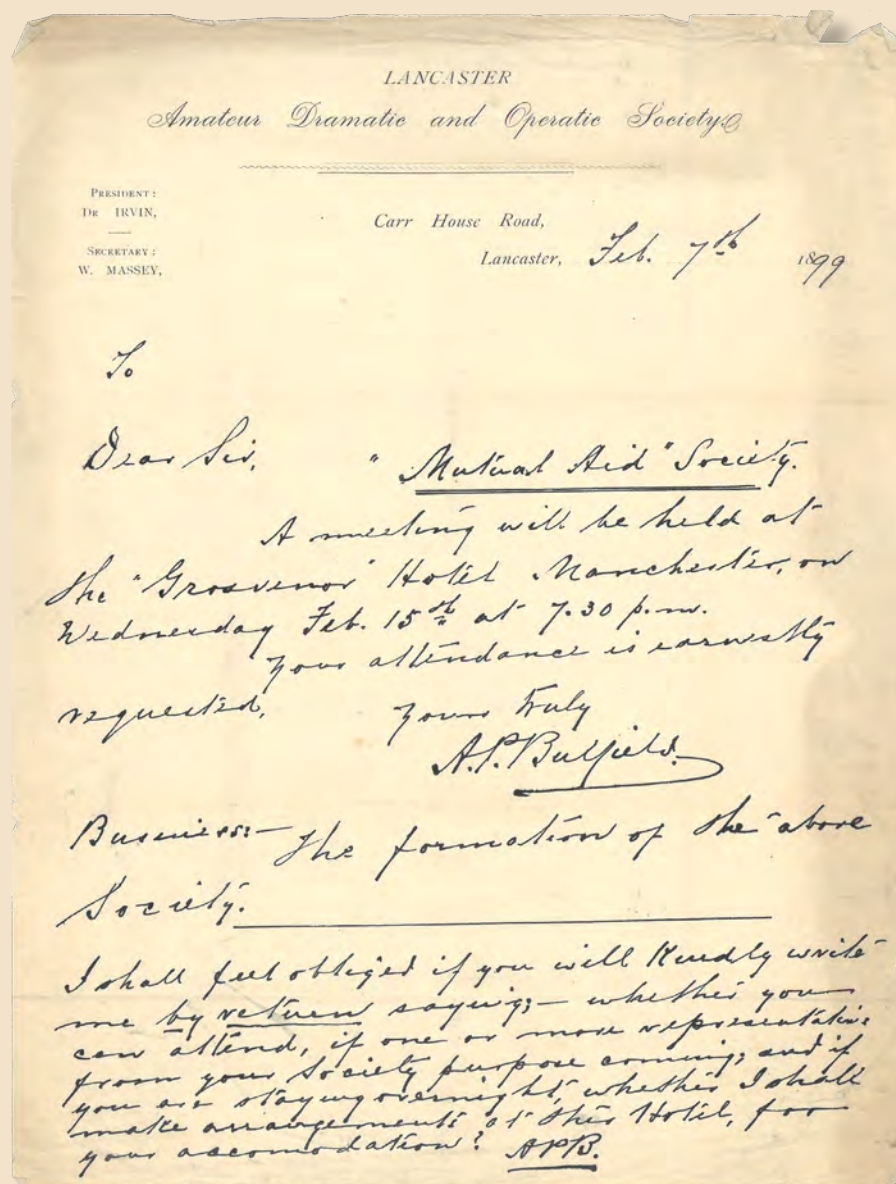 LANCASTER
Amateur Dramatic and Operatic Society
PRESIDENT:
DR IRVIN,
SECRETARY:
W. MASSEY,
Carr House Road,
Lancaster, Feb. 7th 1899
To
Dear Sir, "Mutual Aid" Society.
A meeting will be held at
the "Grosvenor" Hotel Manchester, on
Wednesday Feb. 15th at 7.30 p.m.
Your attendance is earnestly
requested,
Yours Truly
A.P. Bulfield.
Business:— The formation of the above
Society.
I shall feel obliged if you will Kindly write
me by return saying;— whether you
can attend, if one or more representative
from your Society purpose coming; and if
you are staying overnight, whether I shall
make arrangements at this Hotel, for
your accomodation? APB.